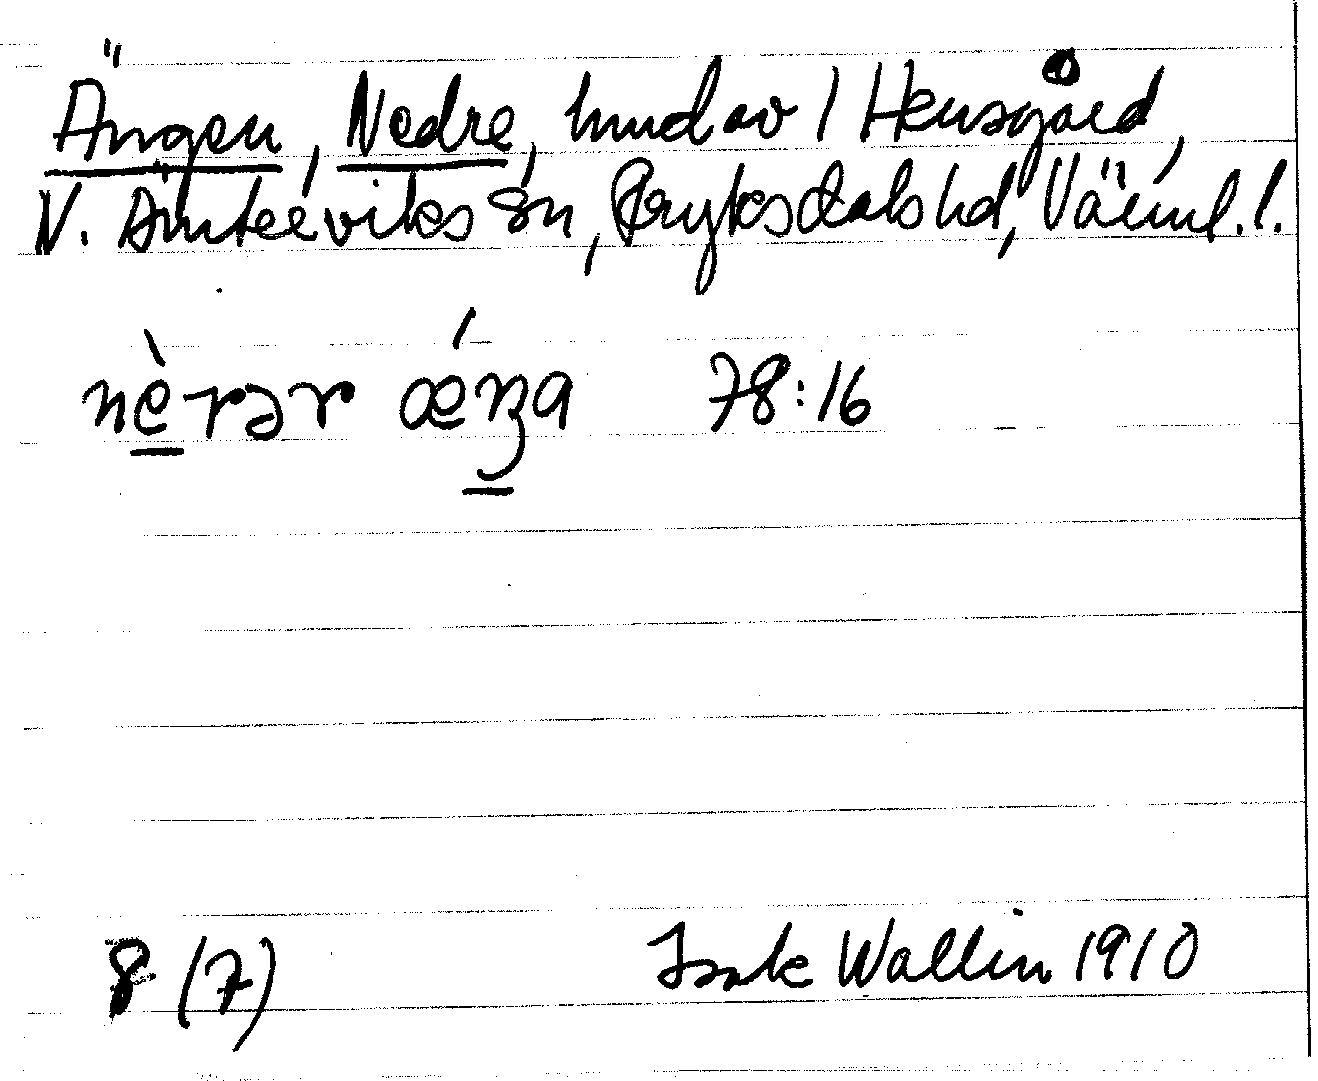 Ängen, Nedre, hmd av 1 Herrsgård,
V. Ämterviks sn, Fryksdals hd, Värml. l.
nè̠rər ǽŋa 78:16
8 (7) Isak Wallin 1910